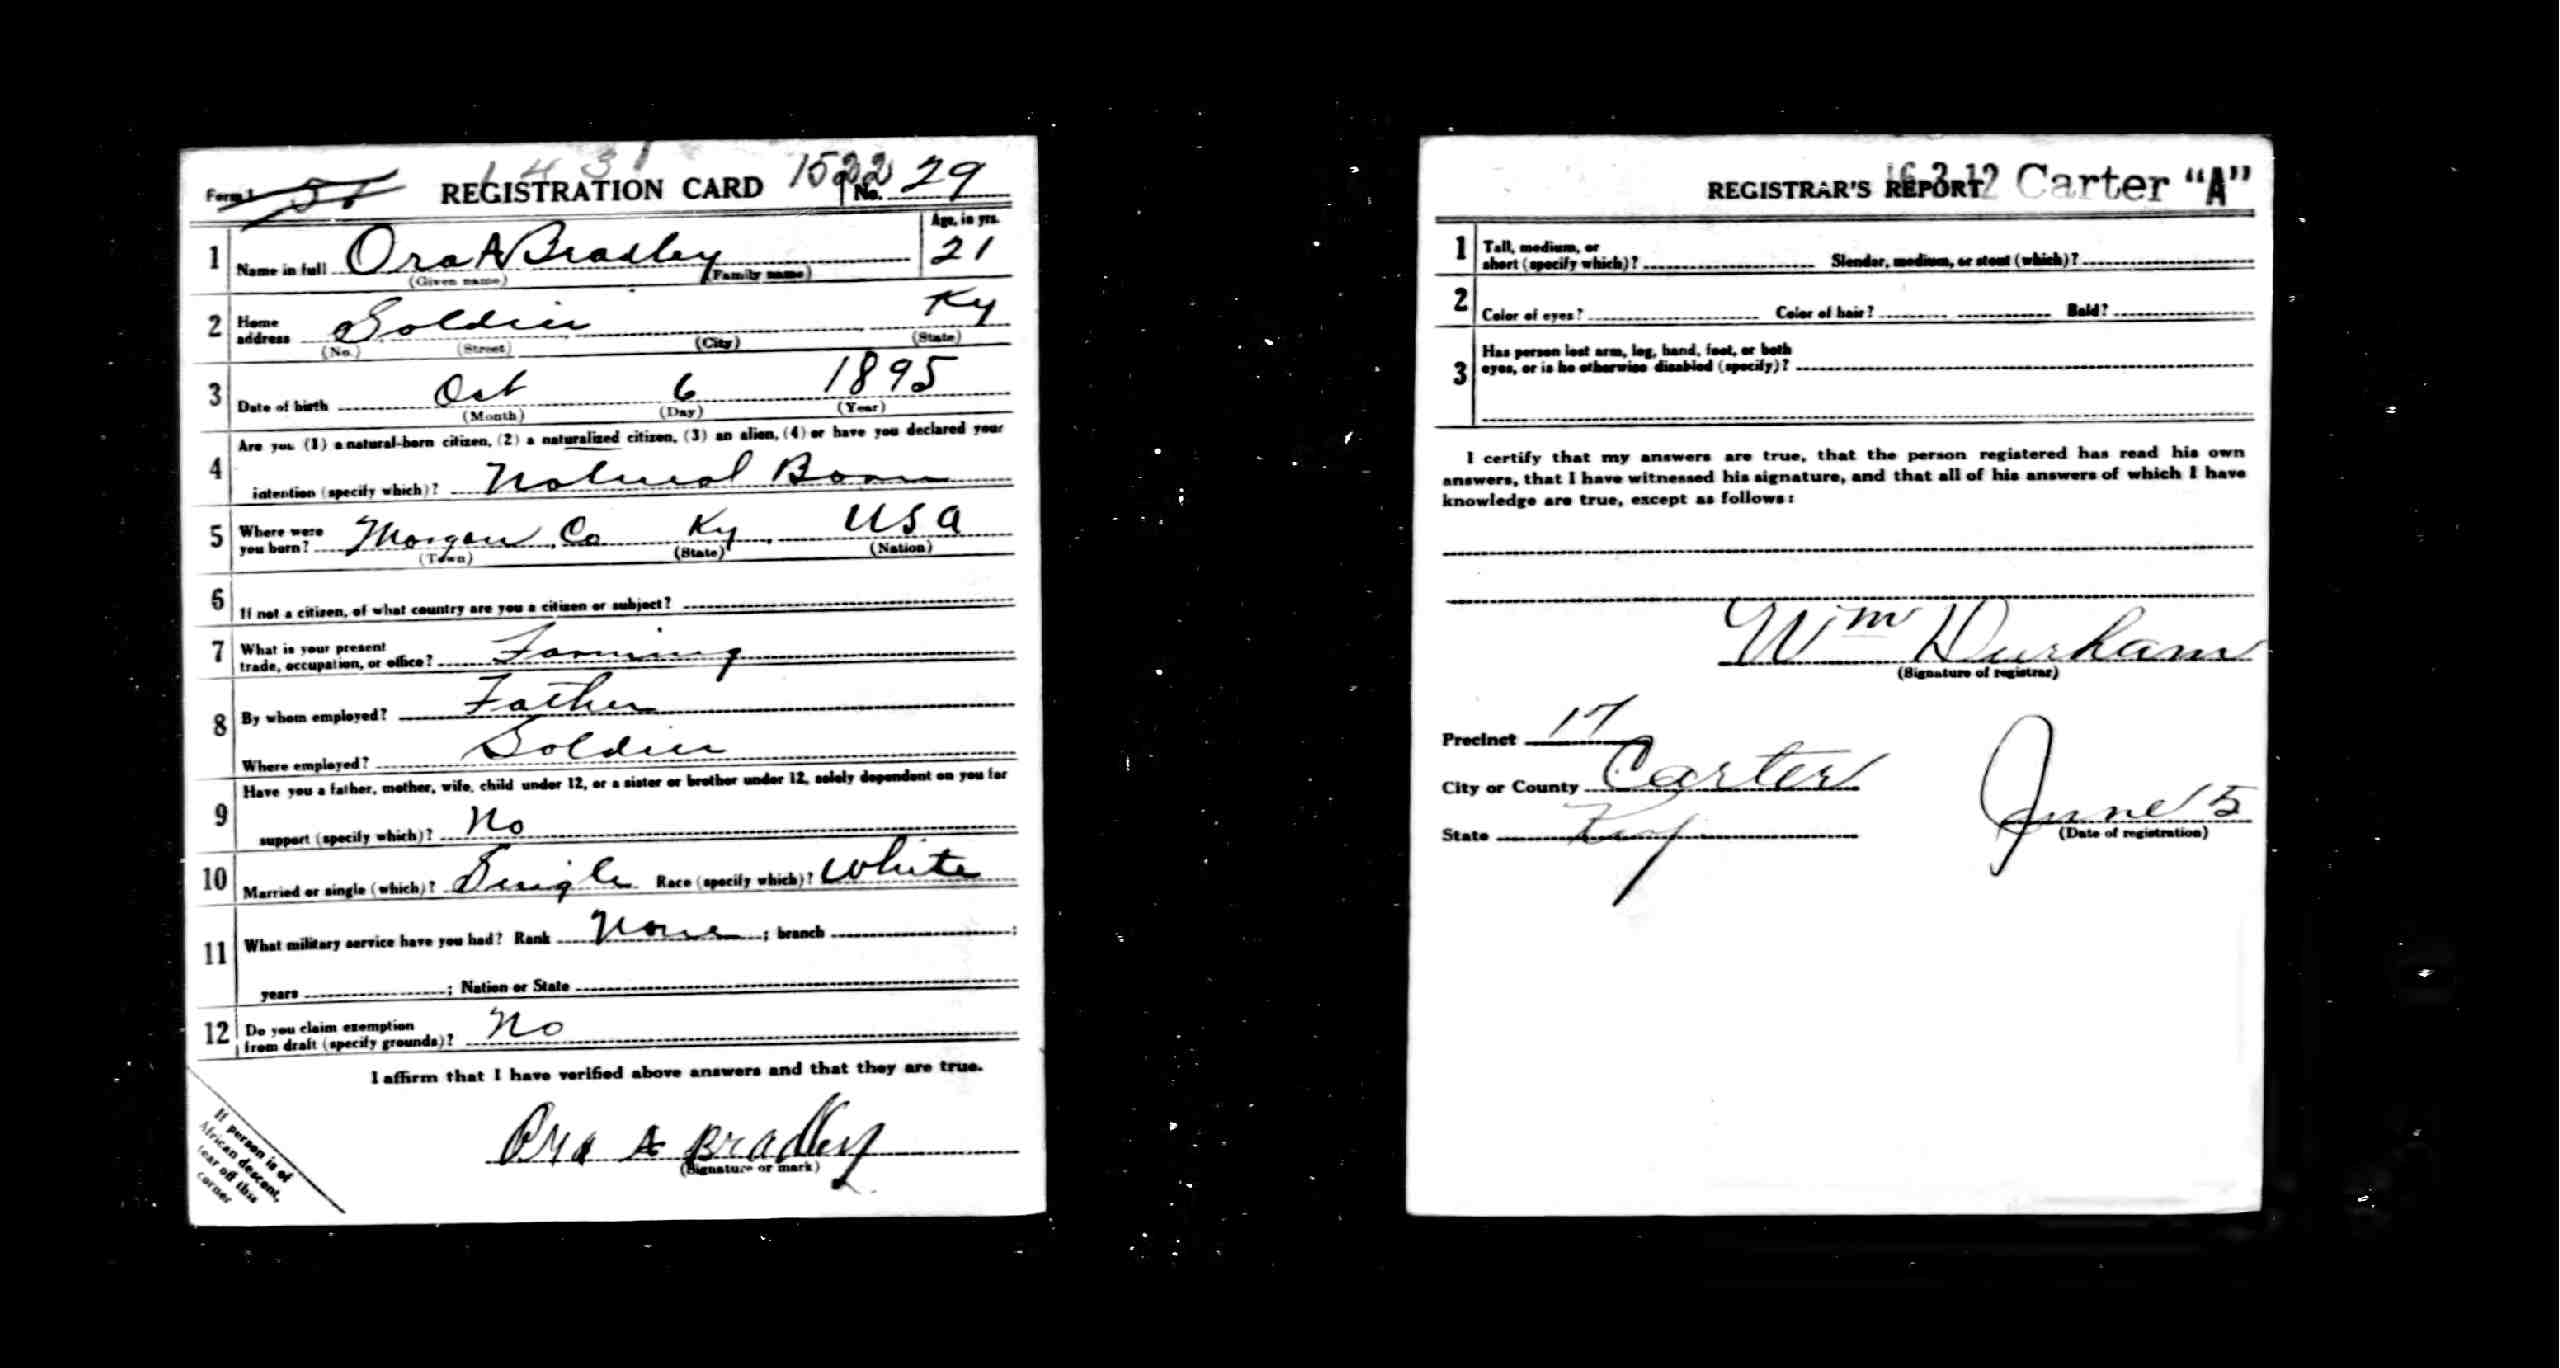 1431
Form 1 REGISTRATION CARD 1522 No. 29
Age, in yrs.
1 Name in full Ora A Bradley 21
(Given name) (Family name)
2 Home address Soldier Ky
(No.) (Street) (City) (State)
3 Date of birth Oct 6 1895
(Month) (Day) (Year)
Are you (1) a natural-born citizen, (2) a naturalized citizen, (3) an alien, (4) or have you declared your
4 intention (specify which)? Natural Born
5 Where were you born? Morgan Co Ky USA
(Town) (State) (Nation)
6 If not a citizen, of what country are you a citizen or subject?
7 What is your present
trade, occupation, or office? Farming
8 By whom employed? Father
Where employed? Soldier
Have you a father, mother, wife, child under 12, or a sister or brother under 12, solely dependent on you for
9 support (specify which)? No
10 Married or single (which)? Single Race (specify which)? White
11 What military service have you had? Rank None ; branch ;
years ; Nation or State
12 Do you claim exemption
from draft (specify grounds)? No
I affirm that I have verified above answers and that they are true.
Ora A Bradley
(Signature or mark)
If person is of
African descent,
tear off this
corner
REGISTRAR'S REPORT 16-3-12 Carter "A"
1 Tall, medium, or
short (specify which)? Slender, medium, or stout (which)?
2 Color of eyes? Color of hair? Bald?
3 Has person lost arm, leg, hand, foot, or both
eyes, or is he otherwise disabled (specify)?
I certify that my answers are true, that the person registered has read his own
answers, that I have witnessed his signature, and that all of his answers of which I have
knowledge are true, except as follows:
Wm Durham
(Signature of registrar)
Precinct 17
City or County Carter
State Ky
June 5
(Date of registration)